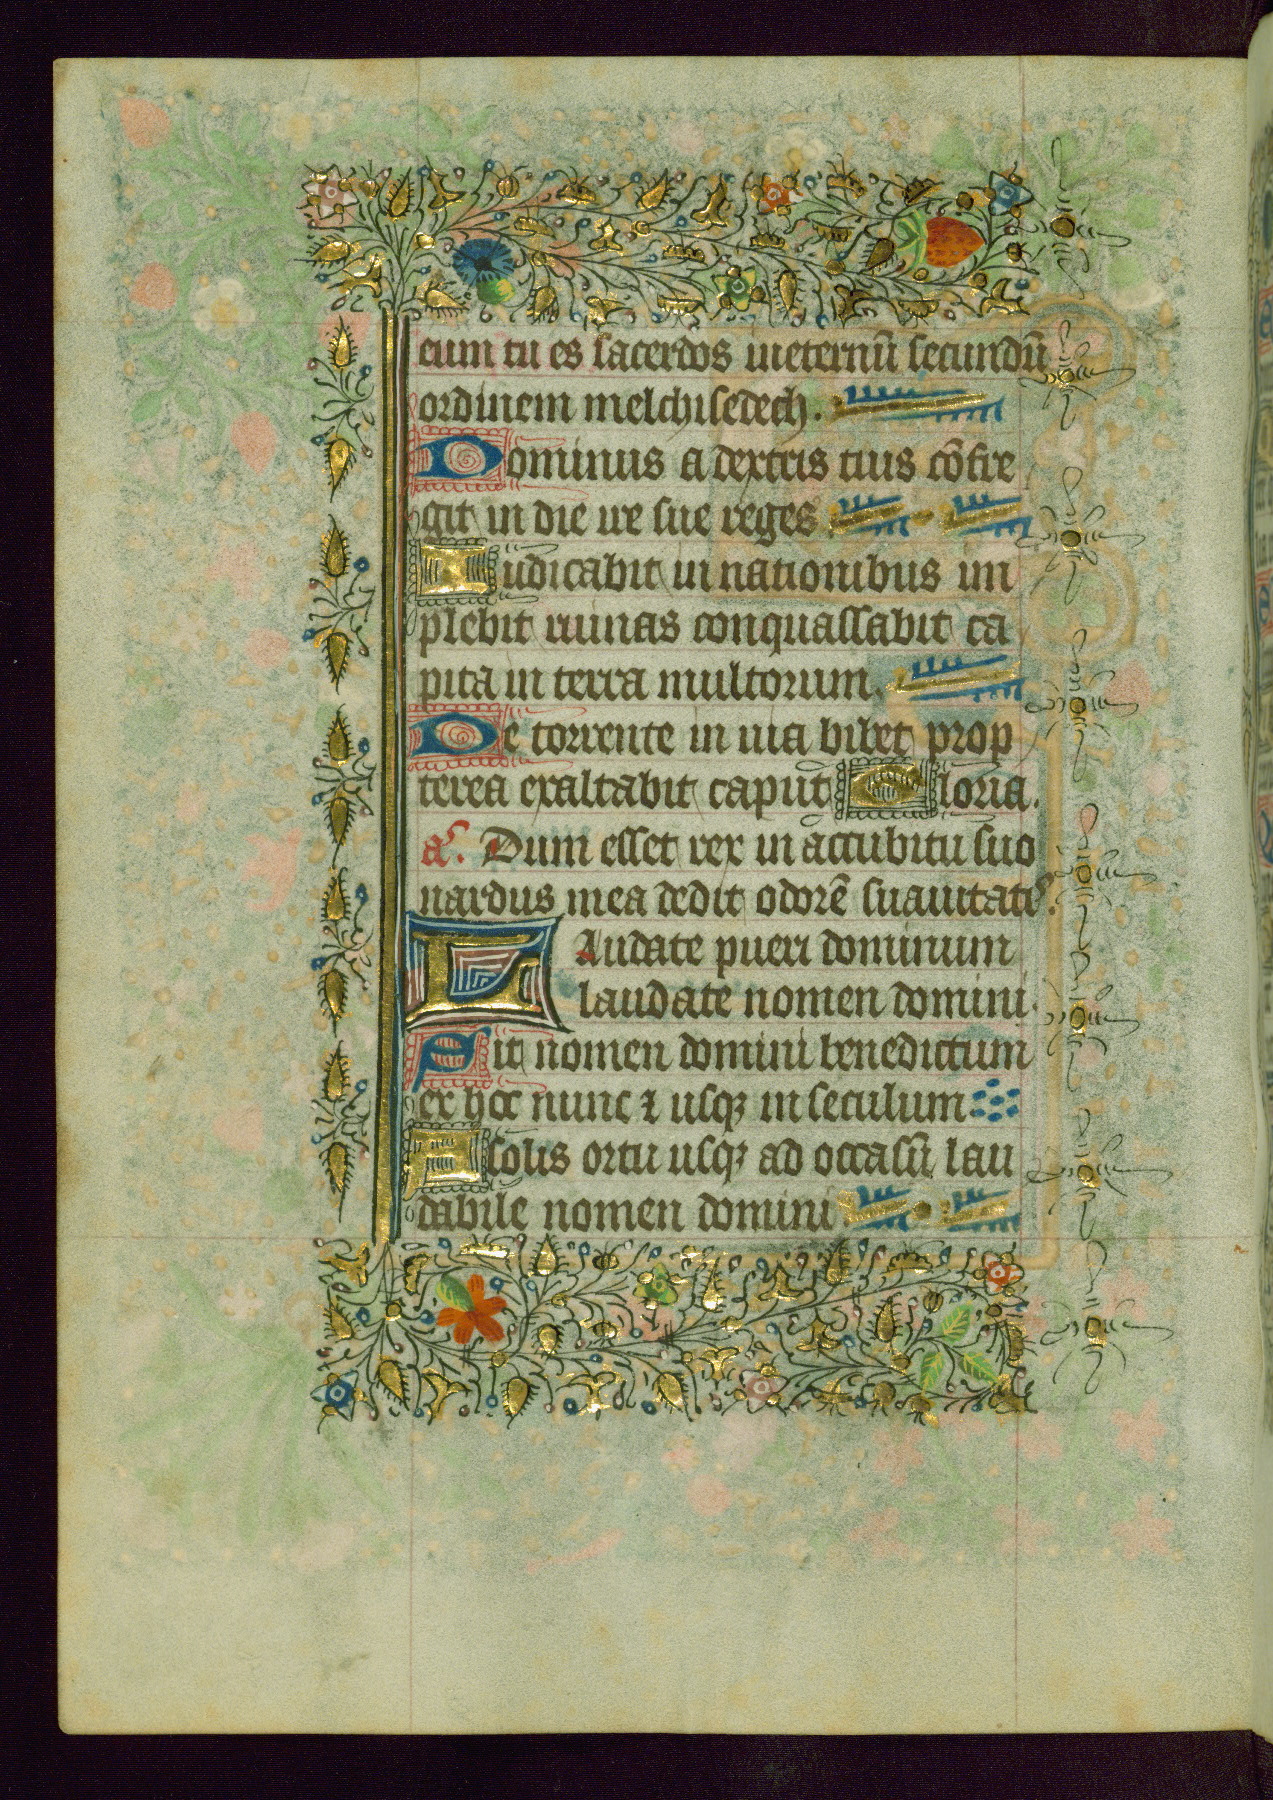 eum tu es sacerdos ineternū secundū
ordinem melchisedech.
Dominus a dextris tuis cōfre
git in die ire sue reges
Iudicabit in nationibus im
plebit ruinas conquassabit ca
pita in terra multorum.
De torrente in uia bibet prop
terea exaltabit caput Gloria.
a. Dum esset rex in accubitu suo
nardus mea dedit odorē suauitatis.
Laudate pueri dominum
laudate nomen domini.
Sit nomen domini benedictum
ex hoc nunc ⁊ usqꝫ in seculum
A solis ortu usqꝫ ad occasū lau
dabile nomen domini